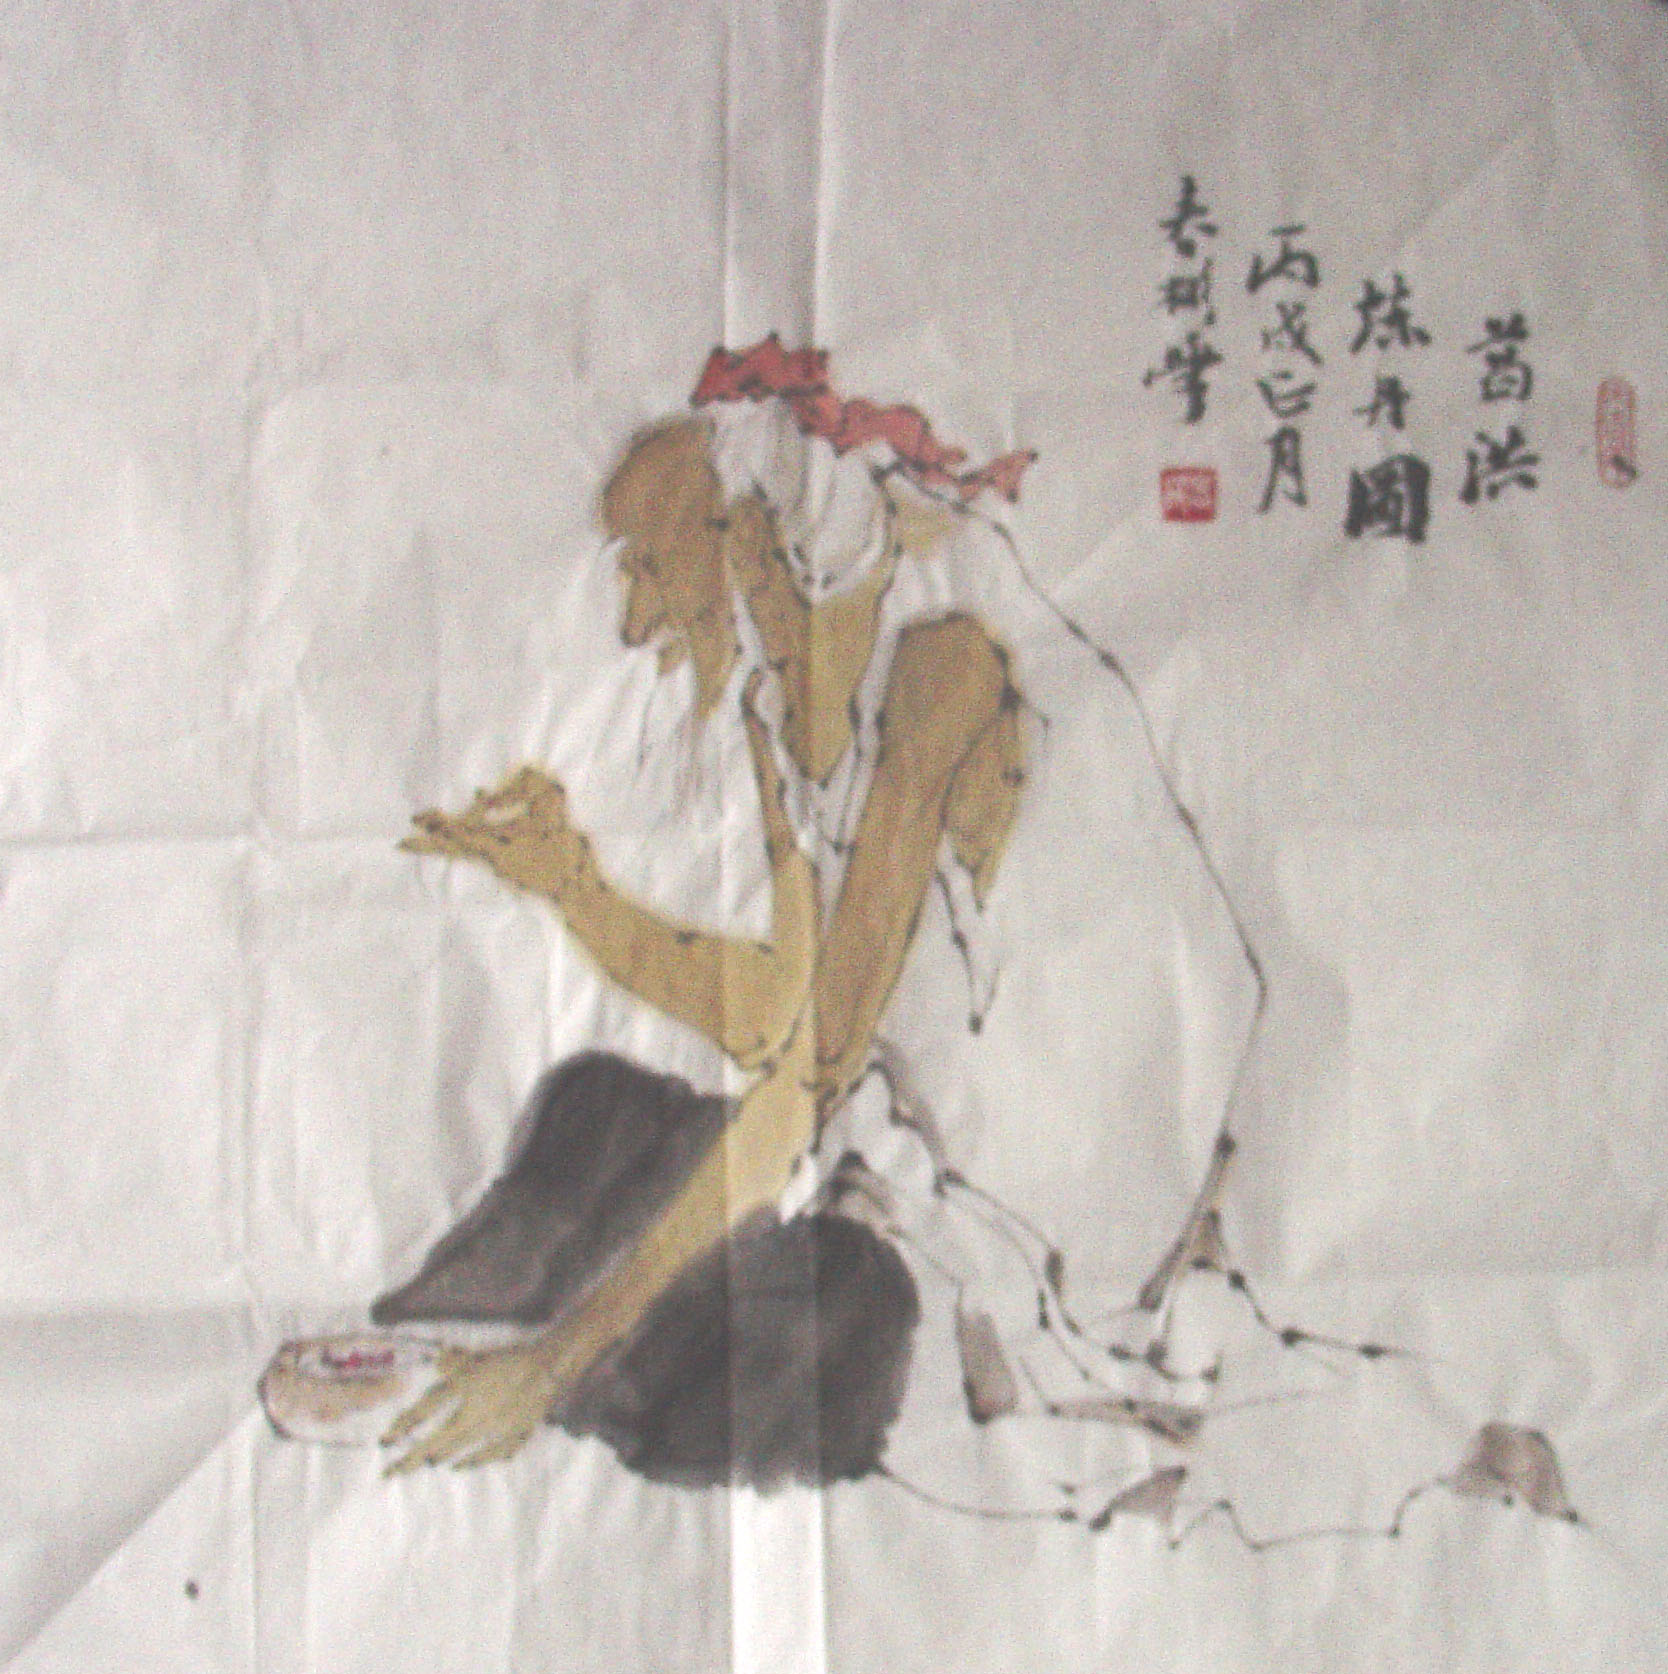 葛洪
炼丹圖
丙戌正月
春樹筆